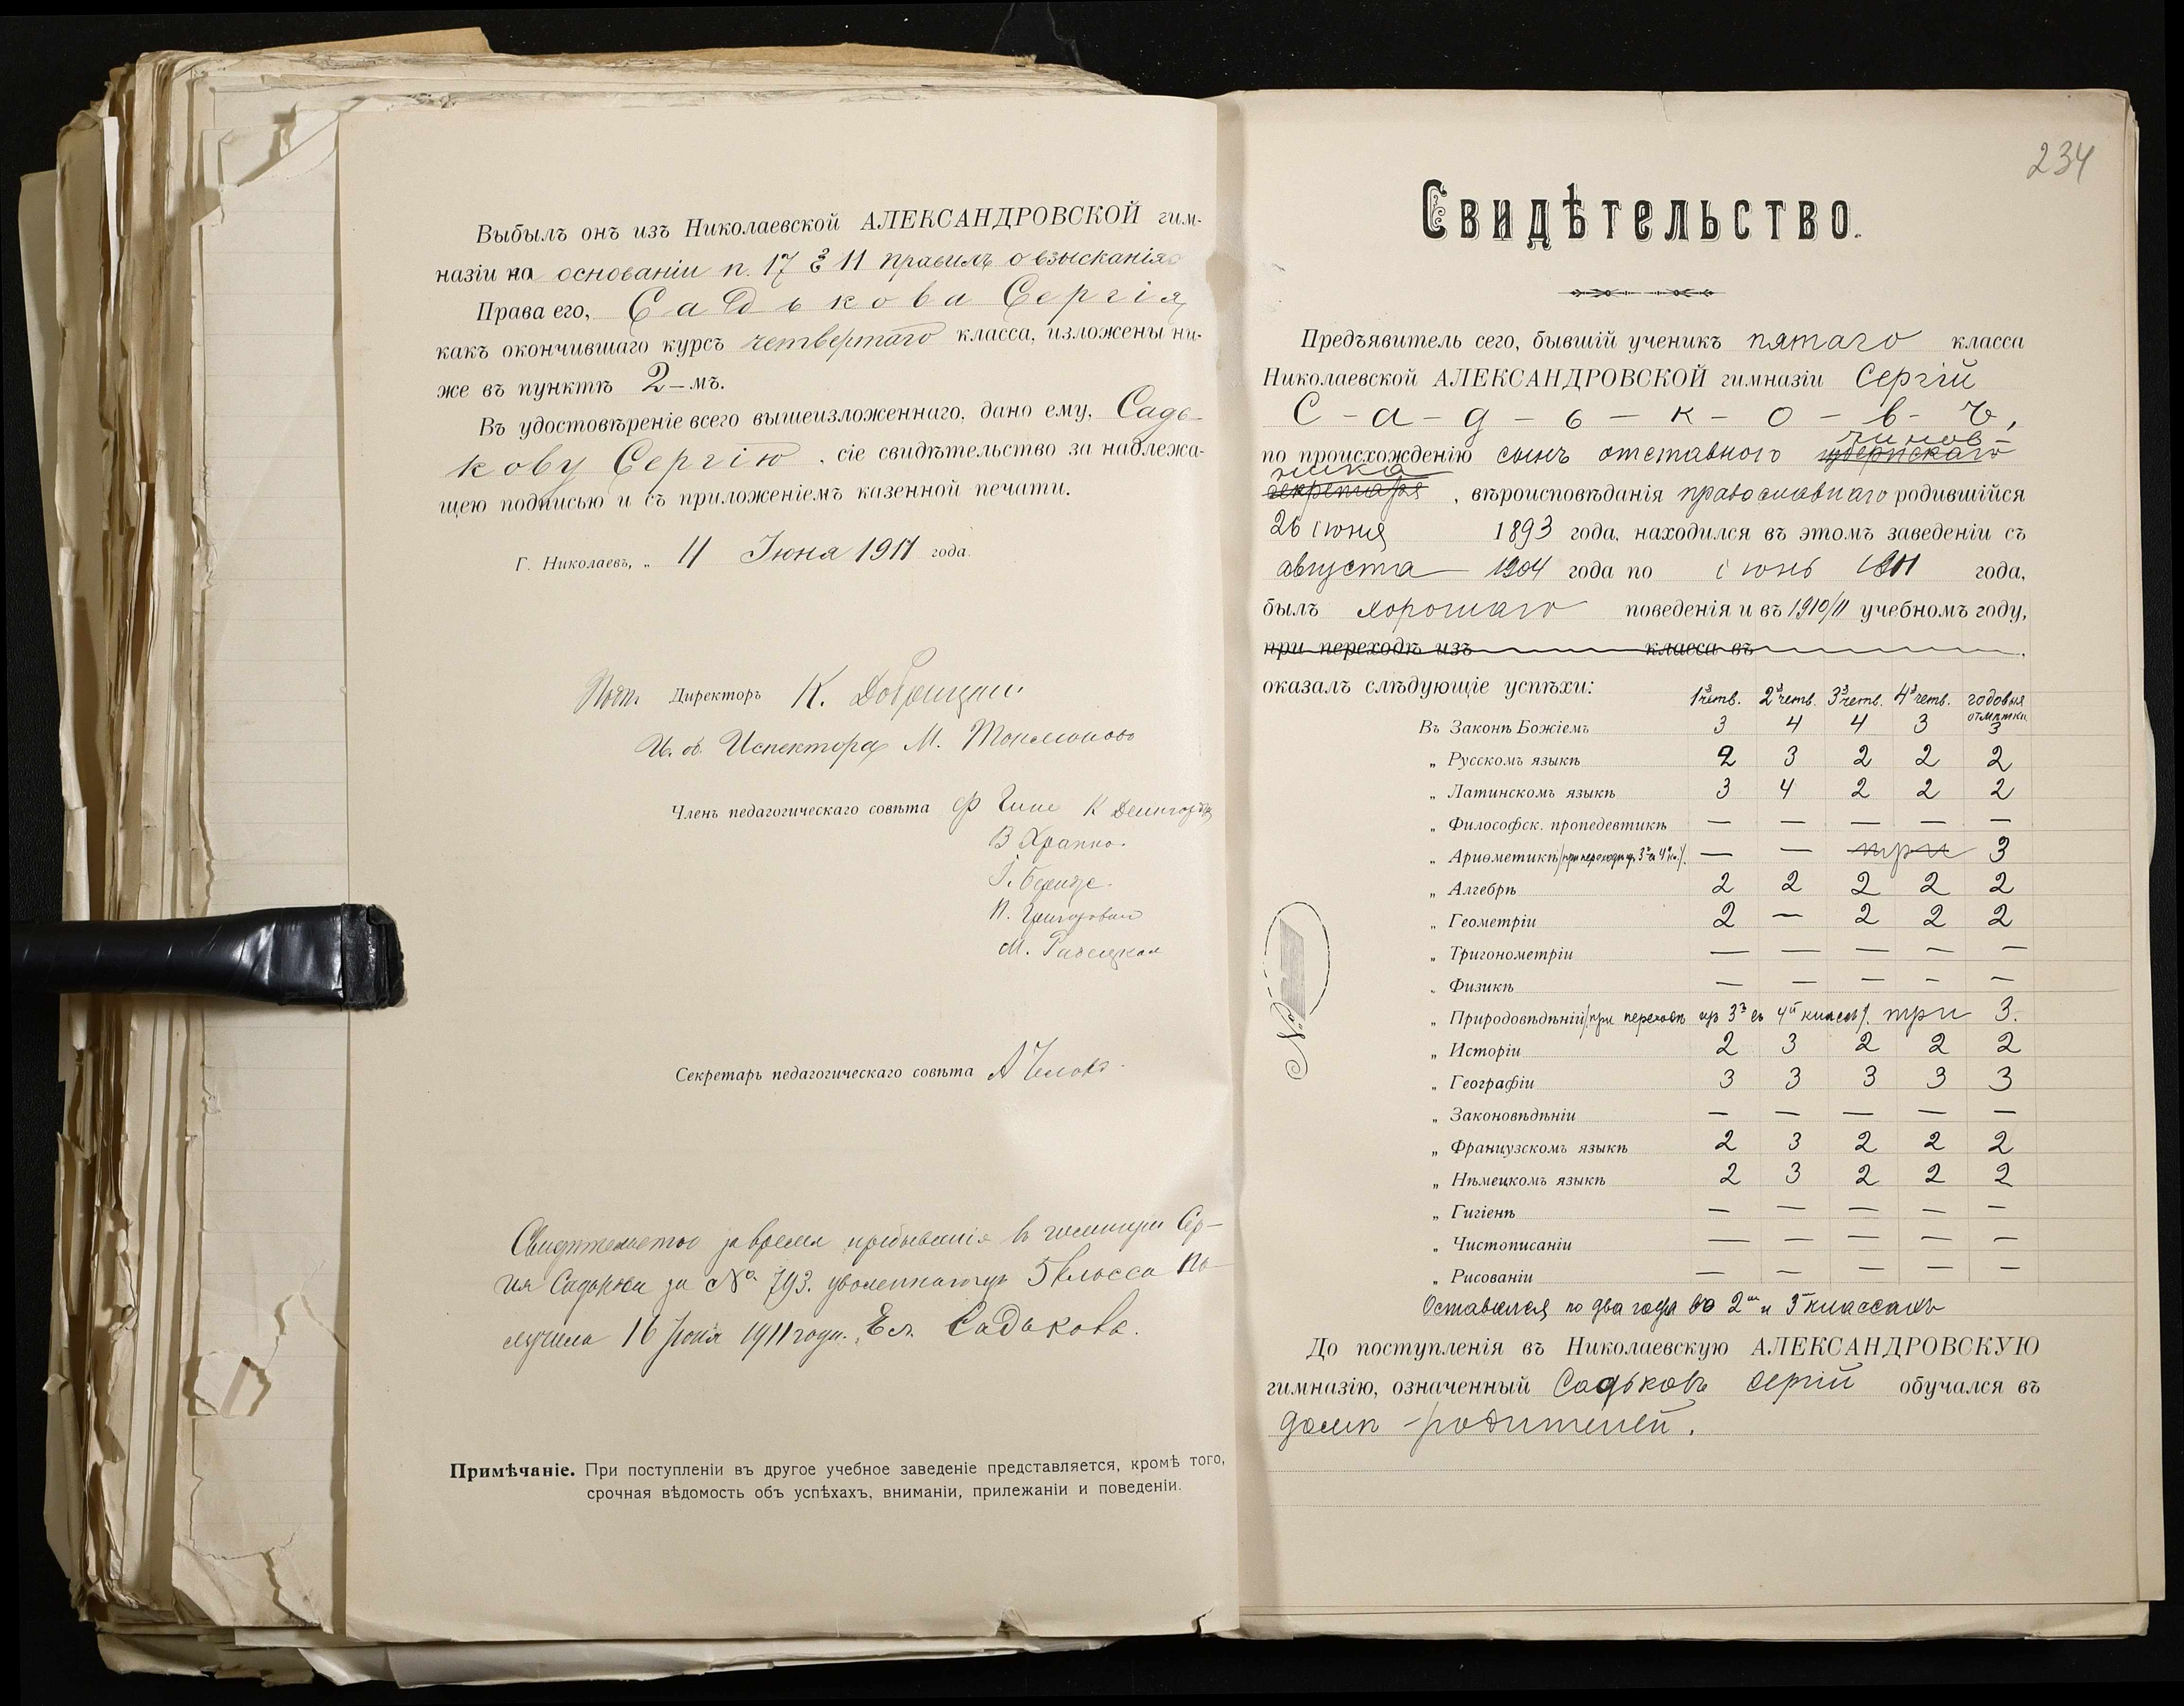 Выбылъ онъ изъ Николаевской АЛЕКСАНДРОВСКОЙ гим-
назіи на основаніи п. 17 § 11 правилъ о взысканіяхъ
Права его, Садькова Сергія,
какъ окончившаго курсъ четвертаго класса, изложены ни-
же въ пунктѣ 2-мъ.
Въ удостовѣреніе всего вышеизложеннаго, дано ему, Садь-
кову Сергію, сіе свидѣтельство за надлежа-
щею подписью и съ приложеніемъ казенной печати.
Г. Николаевъ, „ 11 Іюня 1911 года.
Подп. Директоръ К.
И. об. Инспектора М.
Членъ педагогическаго совѣта
В Храпко.
П. Григорович
М.
Секретарь педагогическаго совѣта А
Свидѣтельство за время пребыванія в гимназіи Сер-
гія Садькова за № 793. уволеннаго изъ 5 класса по-
лучила 16 Іюня 1911 года. Ел. Садькова.
Примѣчаніе. При поступленіи въ другое учебное заведеніе представляется, кромѣ того,
срочная вѣдомость объ успѣхахъ, вниманіи, прилежаніи и поведеніи.
234
Свидѣтельство.
Предъявитель сего, бывшій ученикъ пятаго класса
Николаевской АЛЕКСАНДРОВСКОЙ гимназіи Сергій
С-а-д-ь-к-о-в-ъ,
по происхожденію сынъ отставного губернскаго чинов-
ника секретаря, вѣроисповѣданія православнаго родившійся
26 іюня 1893 года, находился въ этомъ заведеніи съ
августа 1904 года по іюнь 1911 года,
былъ хорошаго поведенія и въ 1910/11 учебномъ году,
при переходѣ изъ класса въ
оказалъ слѣдующіе успѣхи: 1я четв. 2я четв. 3я четв. 4я четв. годовыя отмѣтки
Въ Законѣ Божіемъ 3 4 4 3 3
„ Русскомъ языкѣ 2 3 2 2 2
„ Латинскомъ языкѣ 3 4 2 2 2
„ Философск. пропедевтикѣ — — — — —
„ Ариѳметикѣ (при переходѣ из 3го в 4й кл.). — — три 3
„ Алгебрѣ 2 2 2 2 2
„ Геометріи 2 — 2 2 2
„ Тригонометріи — — — — —
„ Физикѣ — — — — —
„ Природовѣдѣніи (при переходѣ изъ 3го въ 4й классъ). три 3.
„ Исторіи 2 3 2 2 2
„ Географіи 3 3 3 3 3
„ Законовѣдѣніи — — — — —
„ Французскомъ языкѣ 2 3 2 2 2
„ Нѣмецкомъ языкѣ 2 3 2 2 2
„ Гигіенѣ — — — — —
„ Чистописаніи — — — — —
„ Рисованіи — — — — —
Оставался по два года во 2м и 3 классахъ
До поступленія въ Николаевскую АЛЕКСАНДРОВСКУЮ
гимназію, означенный Садьковъ Сергій обучался въ
домѣ родителей.
№